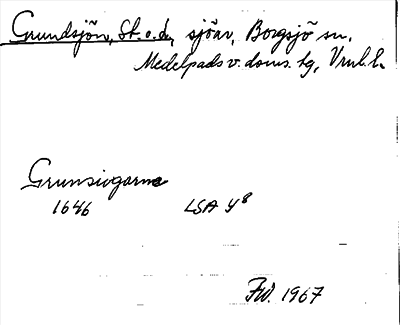 Grundsjön, St. o. d., sjöar, Borgsjö sn,
Medelpads v. doms. tg, Vrnl. l.
Grunsiogarna
1646 LSA Y8
FW. 1967